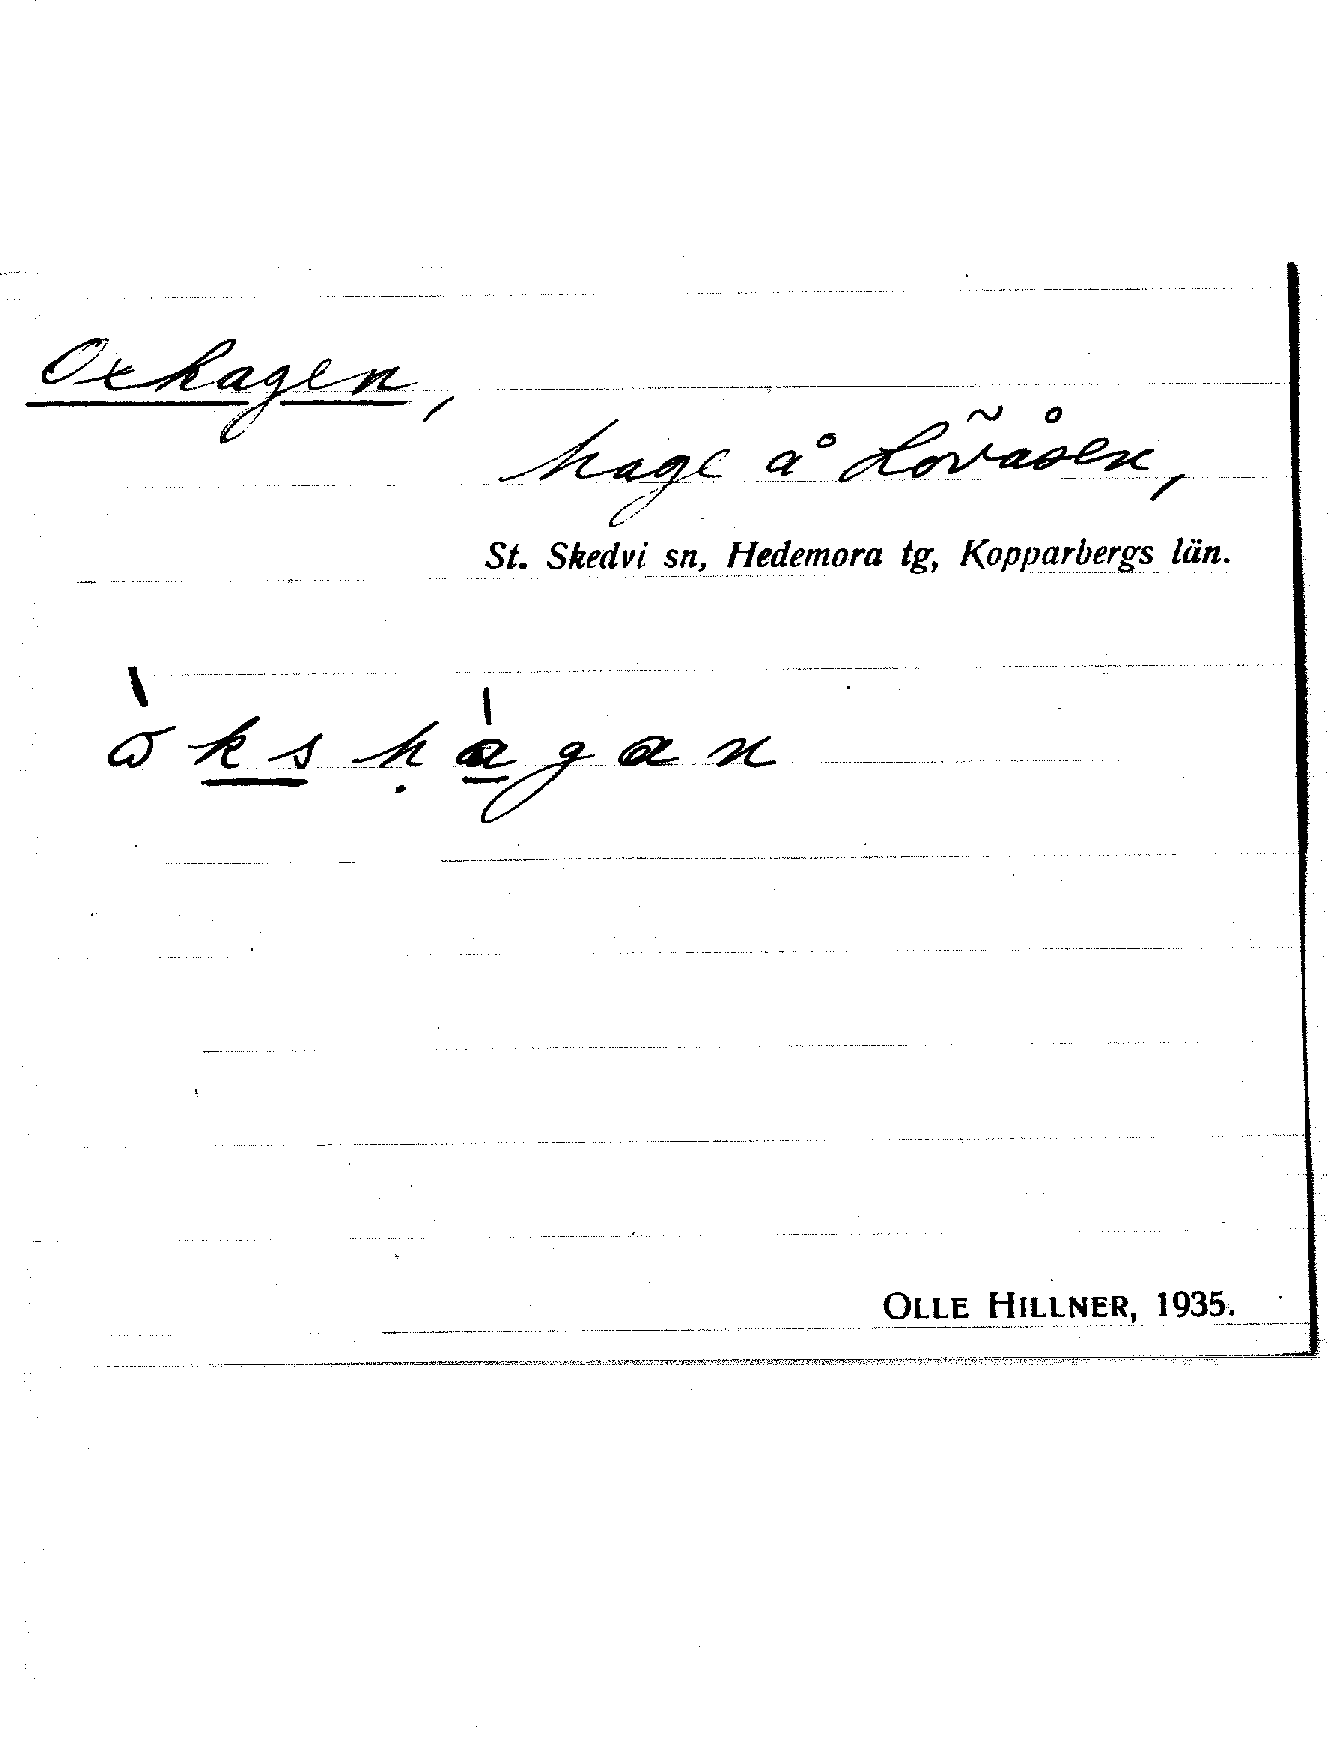 Oxhagen,
hage å Lövåsen,
St. Skedvi sn, Hedemora tg, Kopparbergs län.
òkshàgan
OLLE HILLNER, 1935.